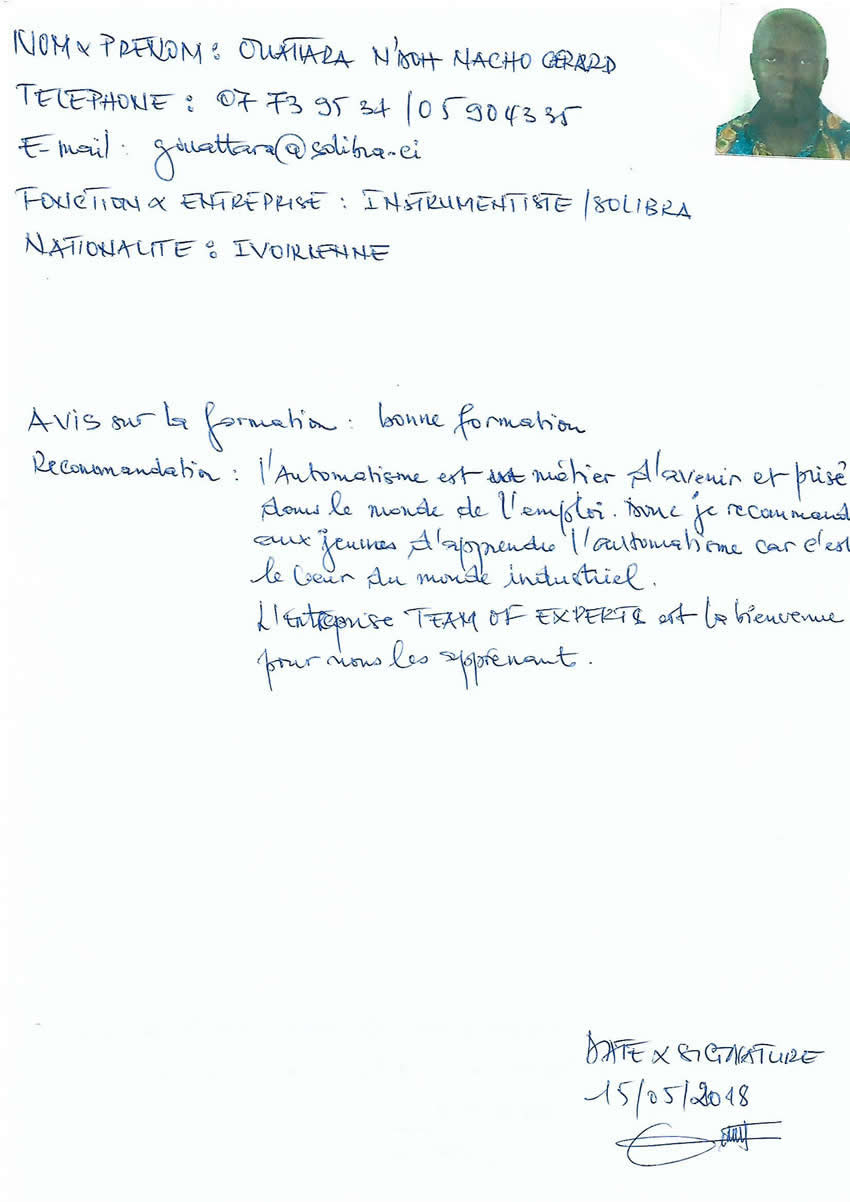 NOM & PRENOM : OUATTARA N'DOH NACHO GERARD
TELEPHONE : 07 73 95 34 / 05 90 43 35
E-mail : gouattara@solibra.ci
FONCTION & ENTREPRISE : INSTRUMENTISTE / SOLIBRA
NATIONALITE : IVOIRIENNE
Avis sur la formation : bonne formation
Recommandation : l'Automatisme est métier d'avenir et prisé
dans le monde de l'emploi. Donc je recommand
aux jeunes d'apprendre l'automatisme car c'est
le coeur du monde industriel.
L'Entreprise TEAM OF EXPERTS est la bienvenue
pour nous les apprenant.
DATE & SIGNATURE
15/05/2018